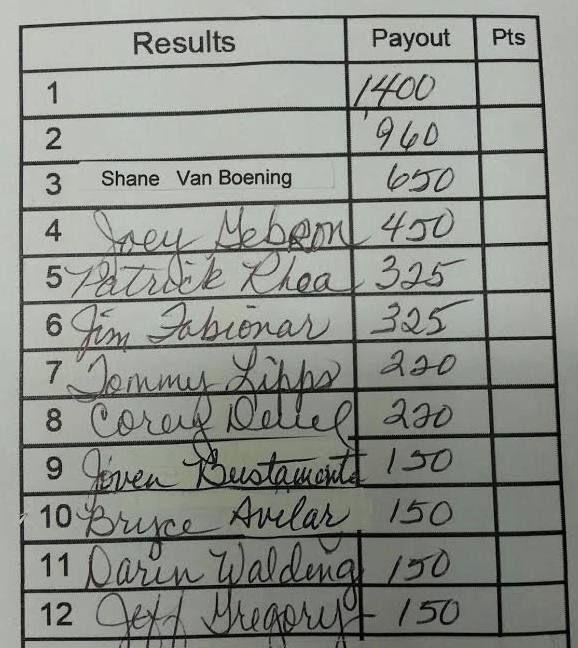 Results Payout Pts
1 1400
2 960
3 Shane Van Boening 650
4 Joey Gebron 450
5 Patrick Rhoa 325
6 Jim Fabionar 325
7 Tommy Lipps 220
8 Corey Deuel 220
9 Joven Bustamante 150
10 Bryce Avelar 150
11 Darin Walding 150
12 Jeff Gregory 150